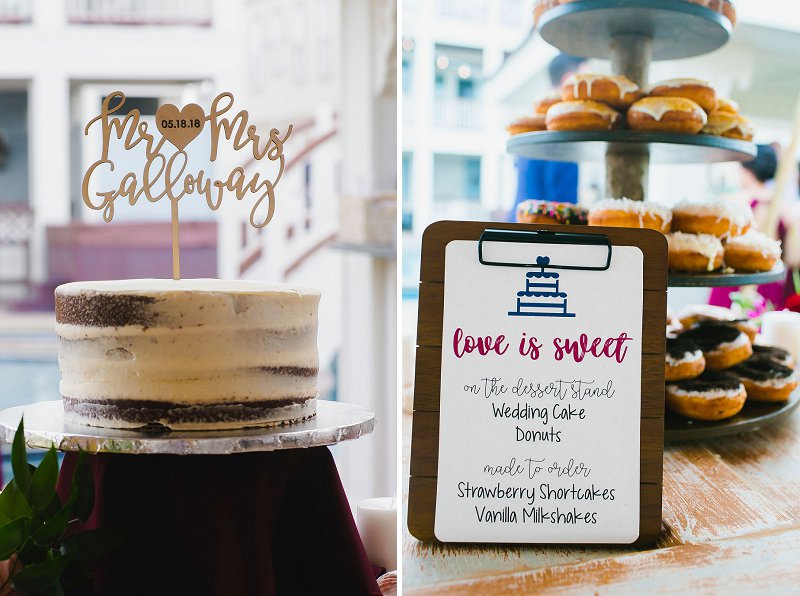 Mr & Mrs
05.18.18
Galloway
love is sweet
on the dessert stand
Wedding Cake
Donuts
made to order
Strawberry Shortcakes
Vanilla Milkshakes